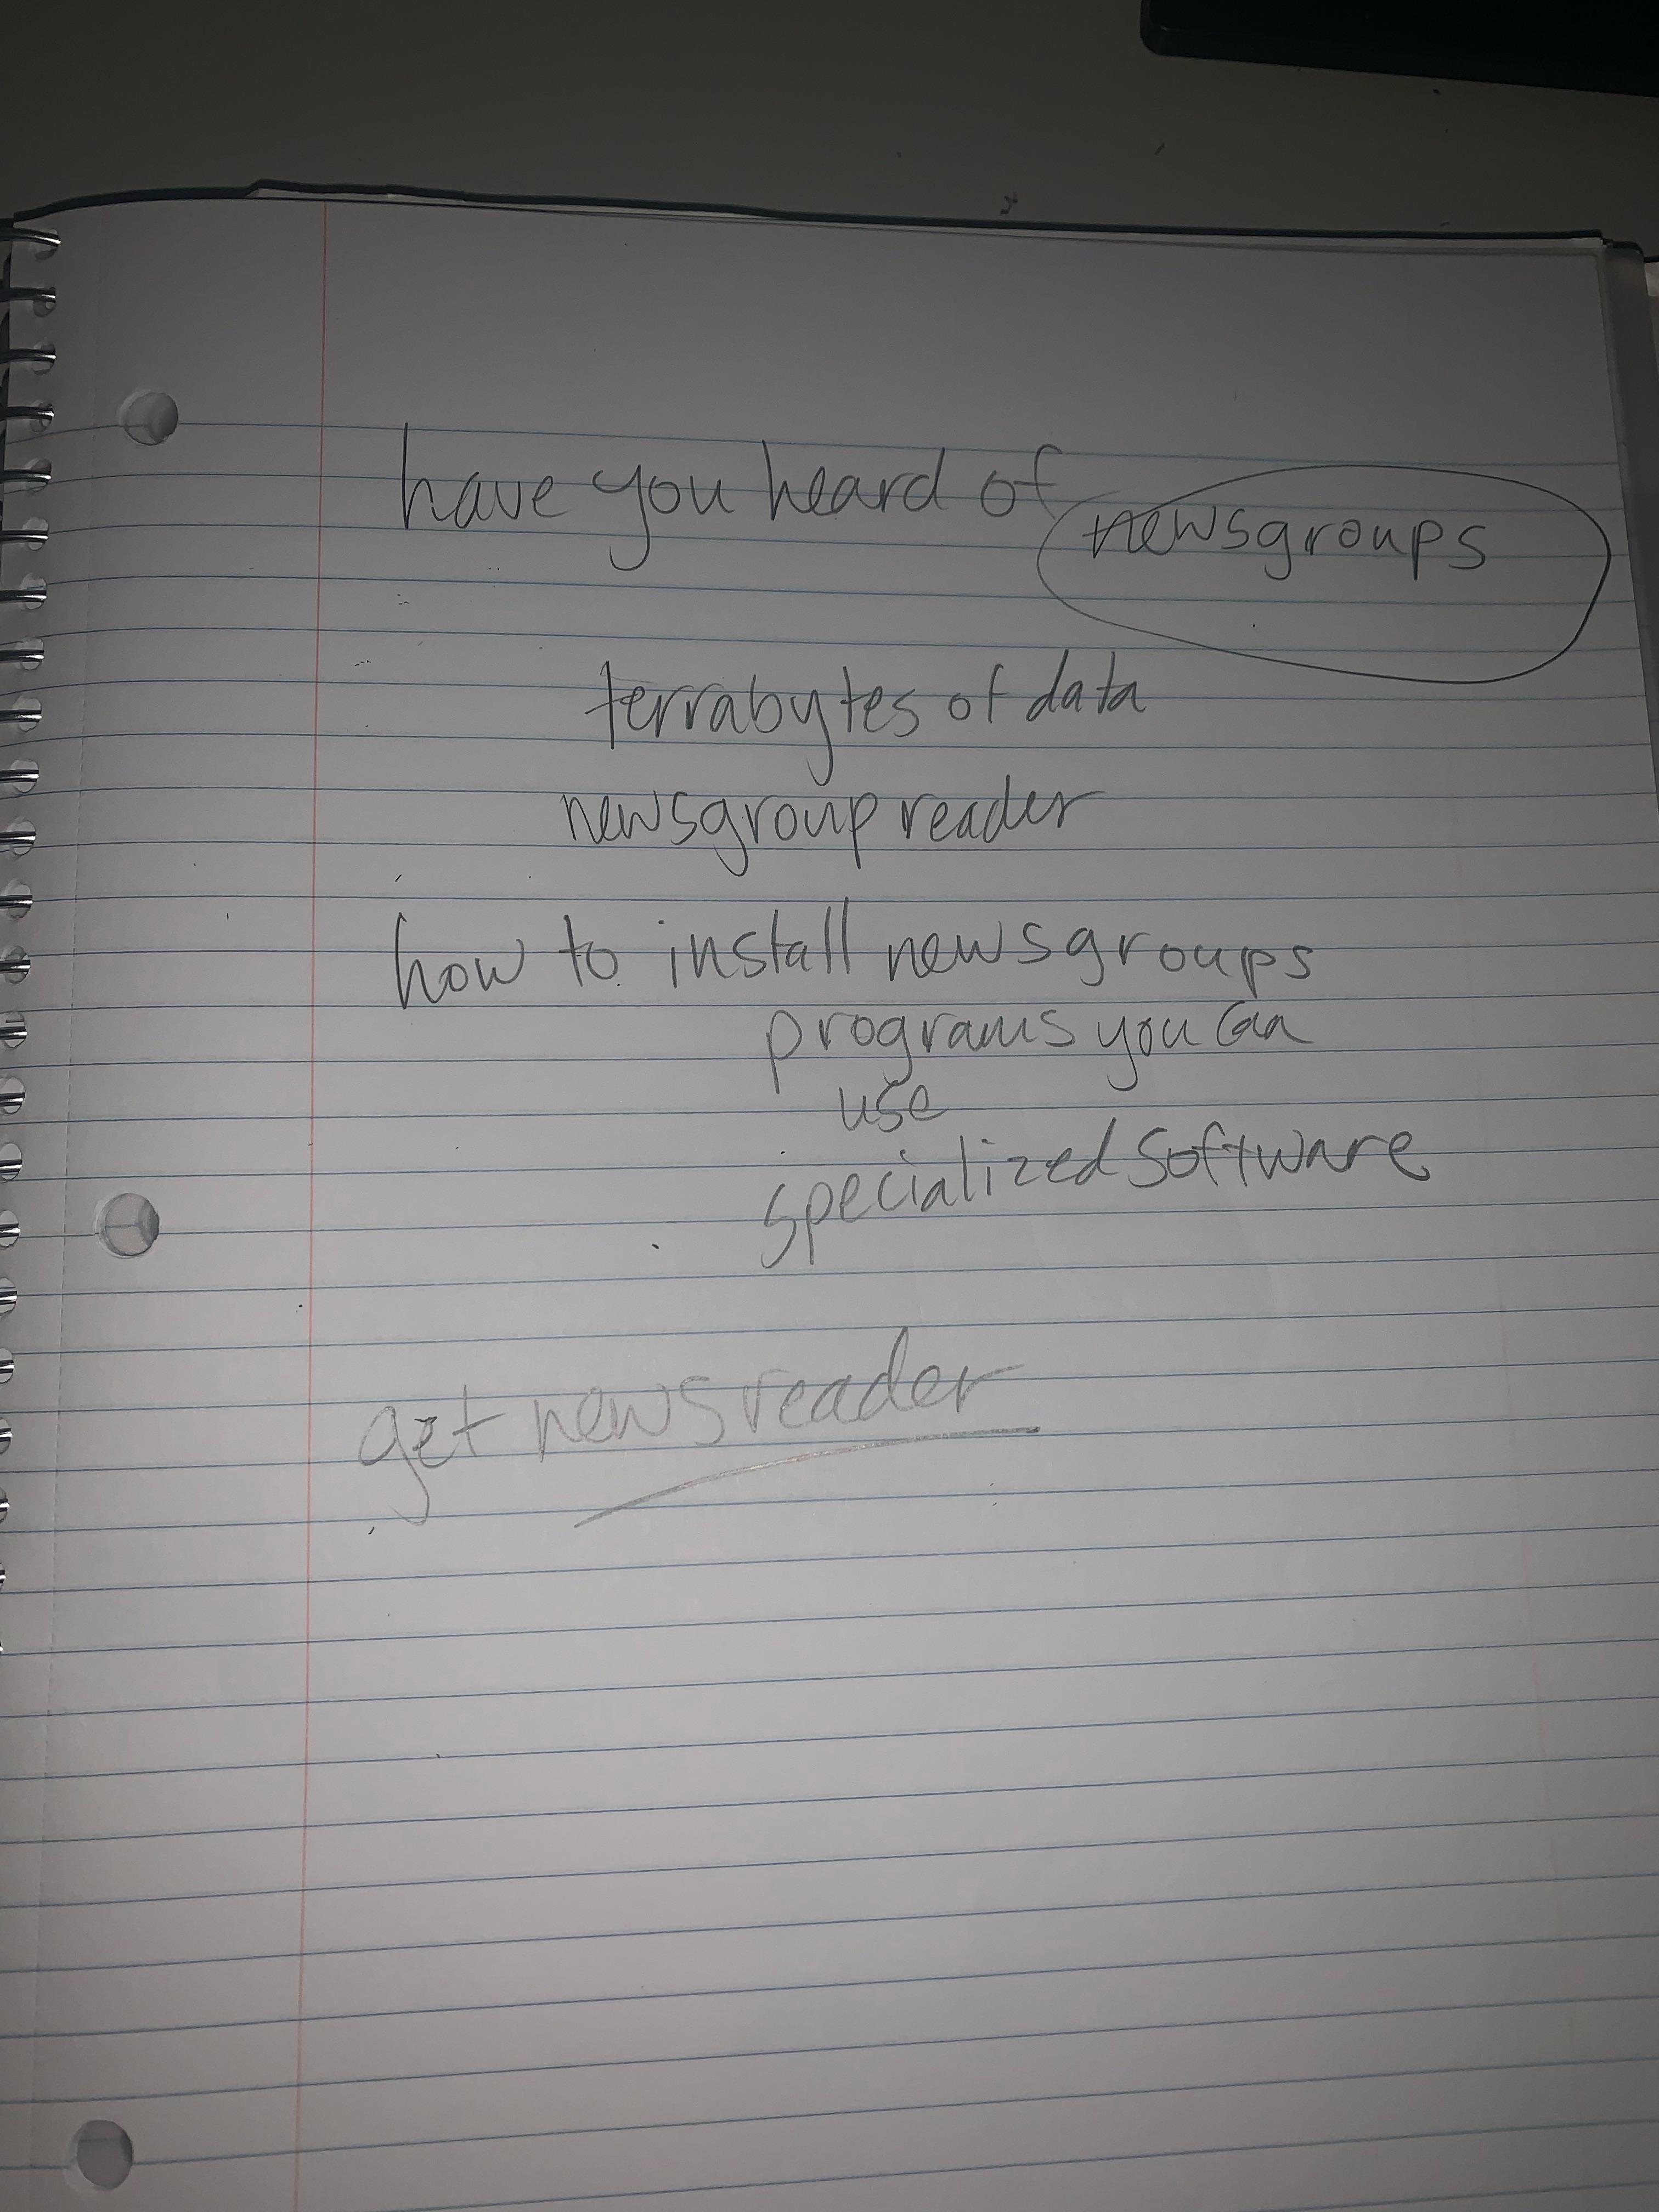 have you heard of newsgroups
terrabytes of data
newsgroup reader
how to install newsgroups
programs you can
use
specialized software
get newsreader